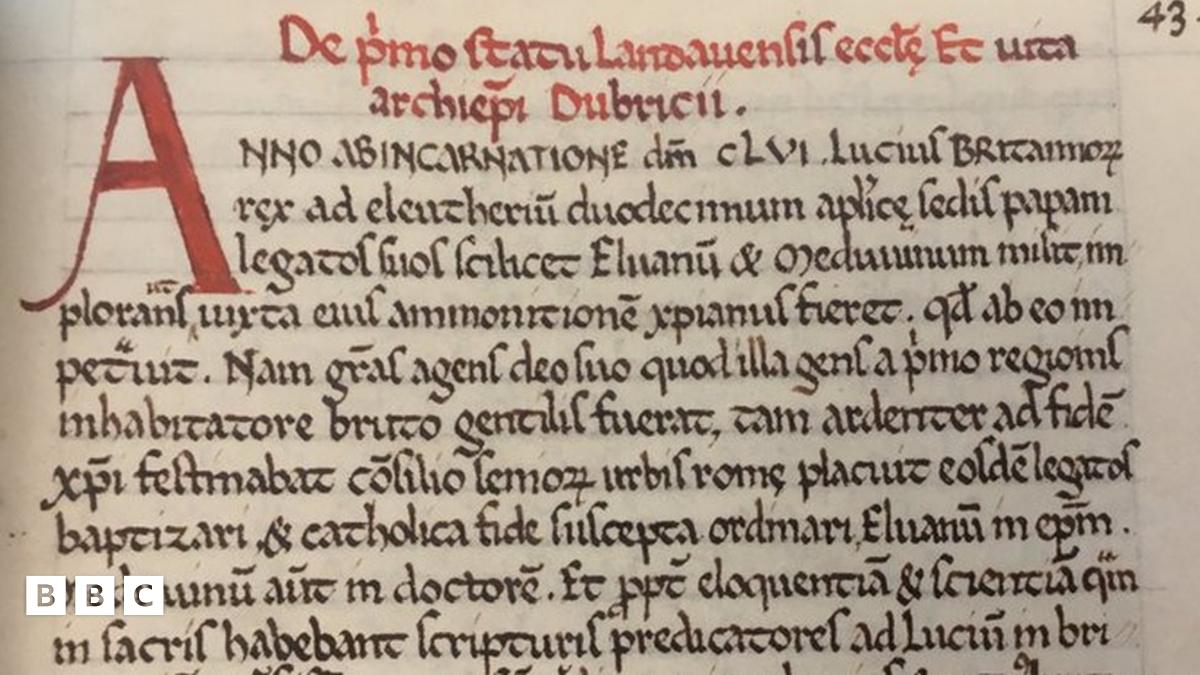 43
De p̍mo statu Landauensis eccłę Et uita
archiep̄i Dubricii.
ANNO AB INCARNATIONE dm̄ cLVI. Lucius BRitannoꝝ
rex ad eleutheriū duodecimum apl̍icę sedis papam
legatos suos scilicet Eluanū & Meduuinum misit, im
plorans ut iuxta eius ammonitionē xpianus fieret. qd̄ ab eo im
petͣuit. Nam gr̄as agens deo suo quod illa gens a p̍mo regionis
inhabitatore bruto gentilis fuerat, tam ardenter ad fidē
xp̄i festinabat cōsilio semoꝝ urbis romę placuit eosdē legatos
baptizari, & catholica fide suscepta ordinari, Eluanū in ep̄m.
uinū aūt in doctorē. Et ꝓpt̄ eloquentiā & scientiā qͣm
in sacris habebant scripturis predicatores ad Luciū in bri
BBC